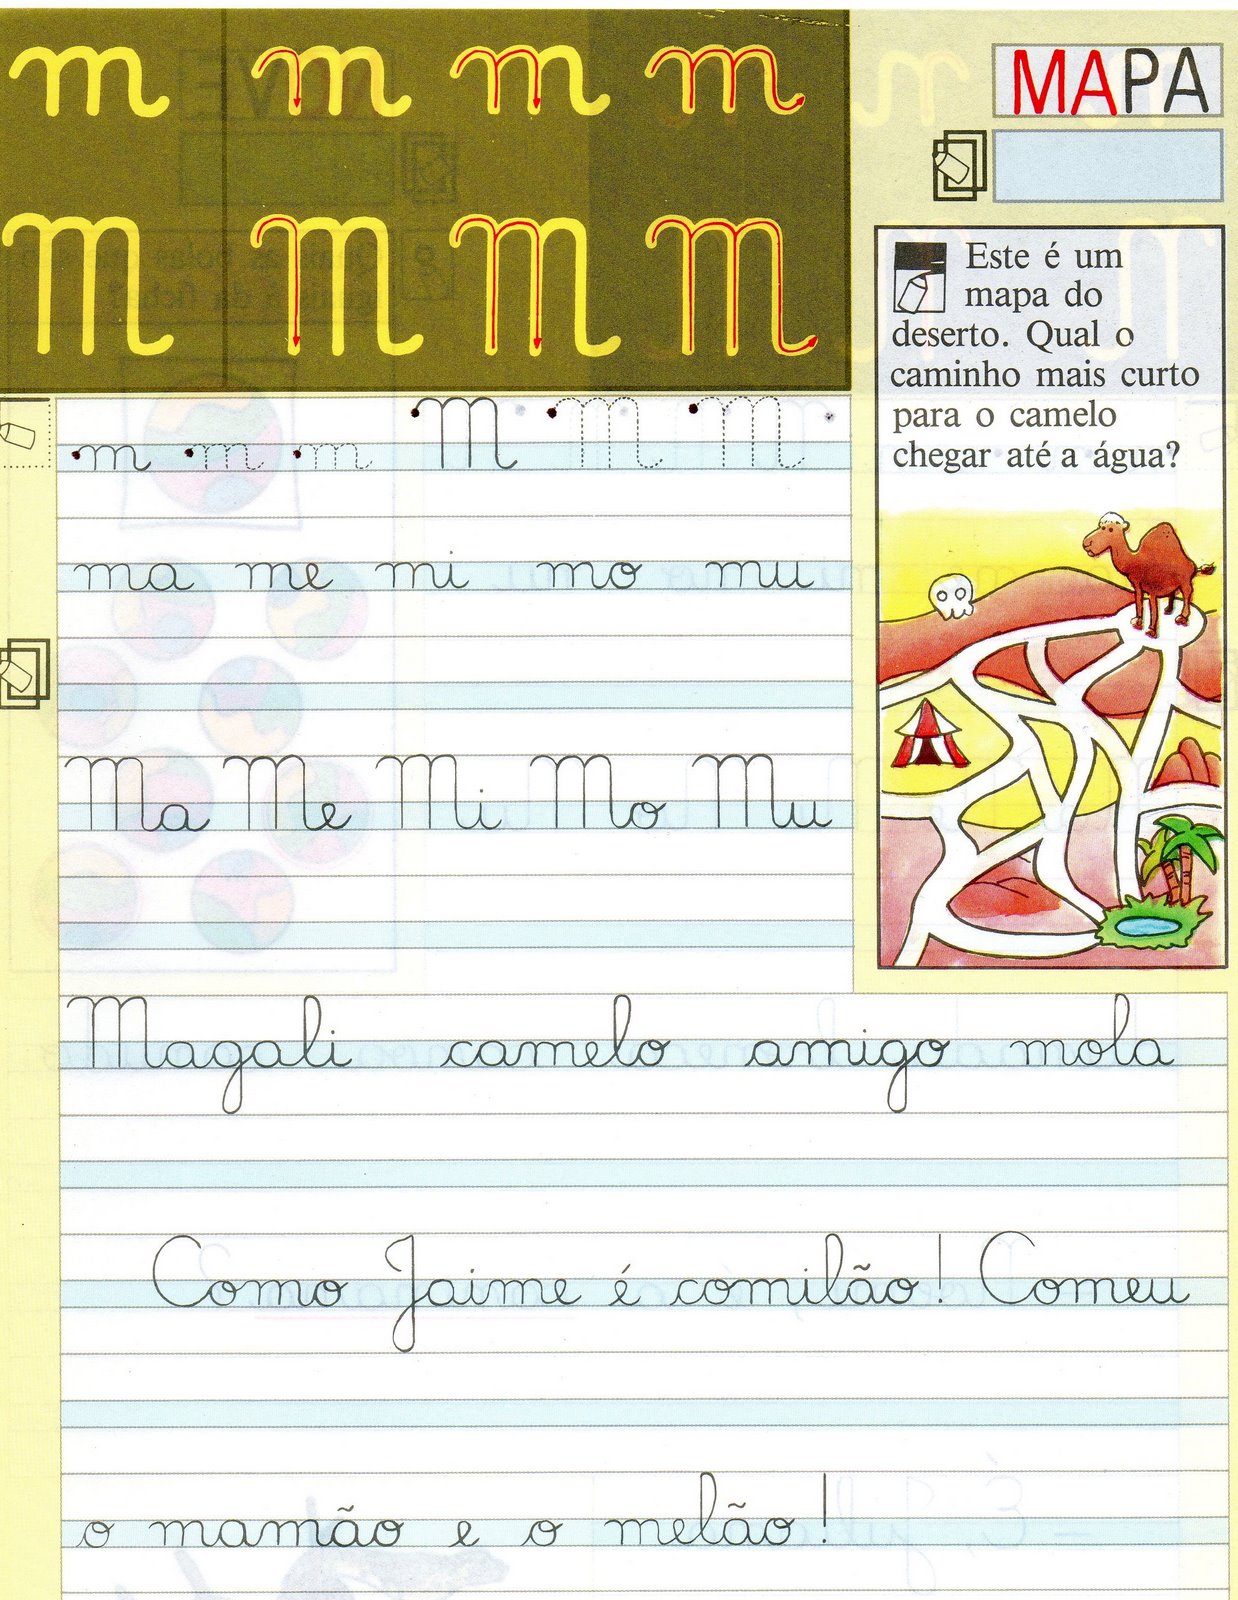 m m m m
M M M M
MAPA
Este é um
mapa do
deserto. Qual o
caminho mais curto
para o camelo
chegar até a água?
m m m M M M
ma me mi mo mu
Ma Me Mi Mo Mu
Magali camelo amigo mola
Como Jaime é comilão! Comeu
o mamão e o melão!